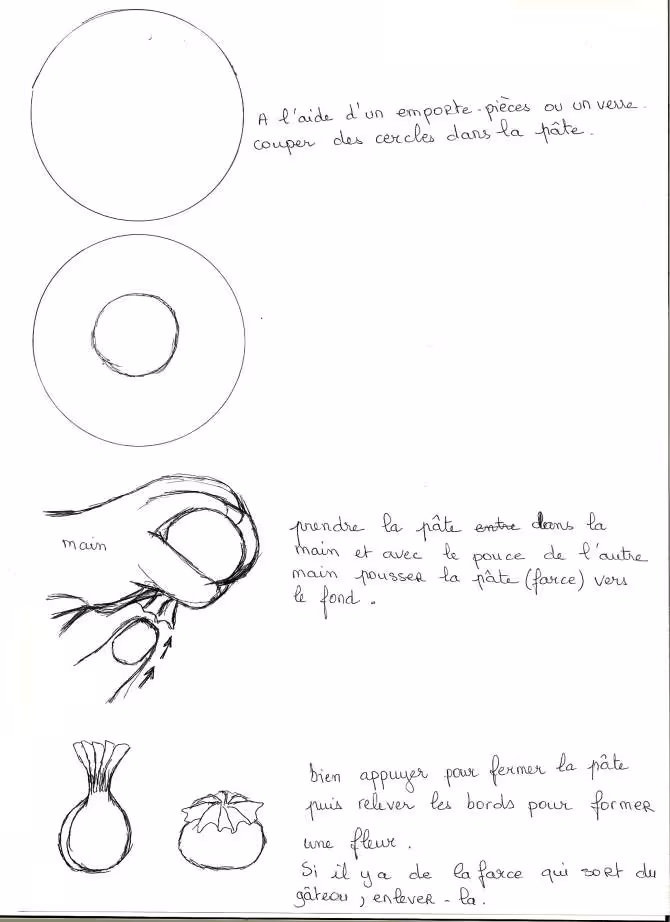 A l'aide d'un emporte-pièces ou un verre.
couper des cercles dans la pâte.
main
prendre la pâte entre dans la
main et avec le pouce de l'autre
main pousser la pâte (farce) vers
le fond.
bien appuyer pour fermer la pâte
puis relever les bords pour former
une fleur.
Si il y a de la farce qui sort du
gâteau, enlever-la.